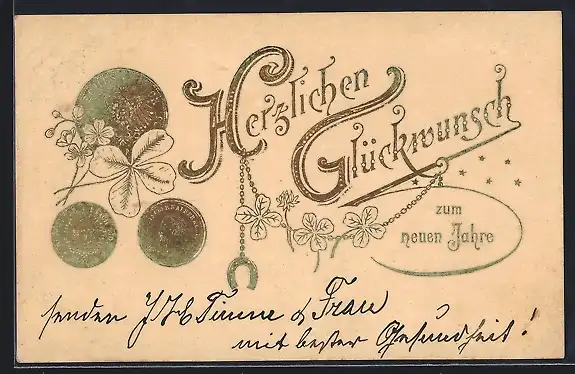 Herzlichen
Glückwunsch
zum
neuen Jahre
senden J H Timme & Frau
mit bester Gesundheit!